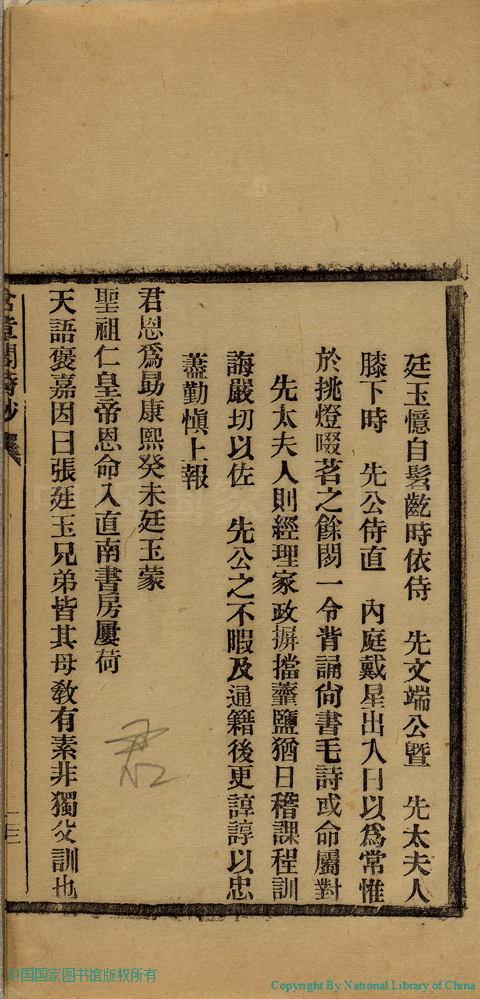 廷玉憶自髫齔時依侍　先文端公曁　先太夫人
膝下時　先公侍直　內庭戴星出入日以爲常惟
於挑燈啜茗之餘閒一令背誦尙書毛詩或命屬對
先太夫人則經理家政摒擋虀鹽猶日稽課程訓
誨嚴切以佐　先公之不暇及通籍後更諄諄以忠
藎勤愼上報
君恩爲勗康熙癸未廷玉蒙
聖祖仁皇帝恩命入直南書房屢荷
天語褒嘉因曰張廷玉兄弟皆其母敎有素非獨父訓也
君
中国国家图书馆版权所有
Copyright By National Library of China